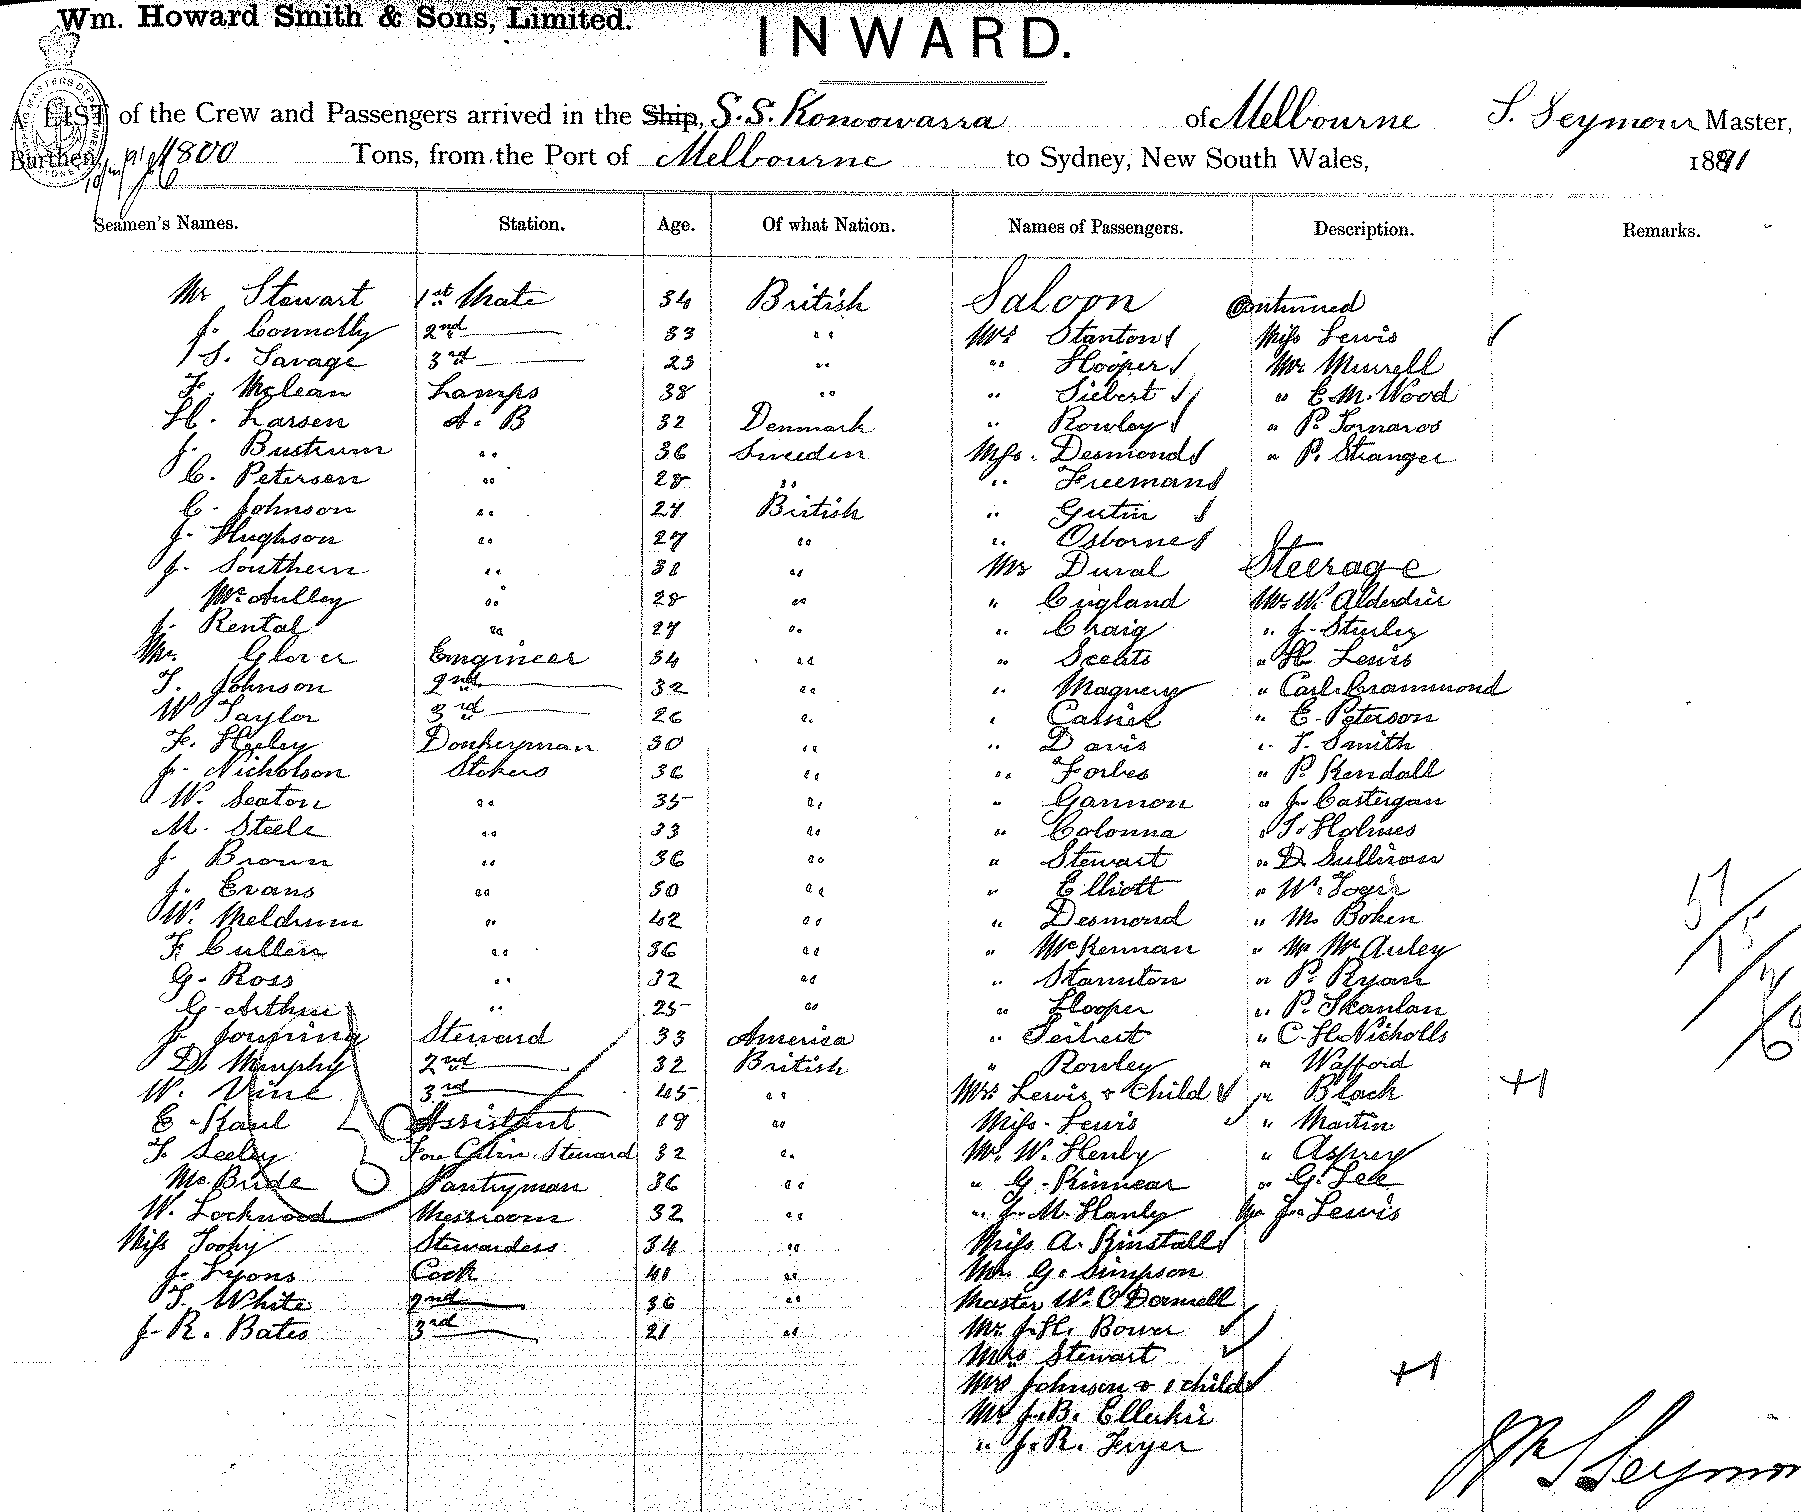 Wm. Howard Smith & Sons, Limited.
INWARD.
A LIST of the Crew and Passengers arrived in the Ship, S.S. Konoowarra of Melbourne S. Seymour Master,
Burthen 800 Tons, from the Port of Melbourne to Sydney, New South Wales, 1891
Seamen's Names. Station. Age. Of what Nation. Names of Passengers. Description. Remarks.
Mr Stewart 1st Mate 34 British Saloon Continued
J. Connolly 2nd 33 " Mrs Stanton Miss Lewis
S. Savage 3rd 23 " " Hooper Mr Murrell
F. McLean Lamps 38 " " Siebert " E. M. Wood
H. Larsen A. B 32 Denmark " Rowley " P. Tornaros
J. Bustrum " 36 Sweden Miss. Desmond " P. Stranger
C. Petersen " 28 " " Freeman
C. Johnson " 27 British " Gutin
J. Hughson " 27 " " Osborne
J. Southern " 38 " Mr Duval Steerage
McAulley " 28 " " England Mr W. Alderdice
J. Rental " 27 " " Craig " J. Sturley
Mr. Glover Engineer 34 " " Sceats " H. Lewis
T. Johnson 2nd 32 " " Magnery " Carl Crammond
W Taylor 3rd 26 " " Cassick " E. Peterson
F. Huley Donkeyman 30 " " Davis " T. Smith
J. Nicholson Stokers 36 " " Forbes " P. Kendall
W. Seaton " 35 " " Gannon " J. Castergan
M. Steele " 33 " " Colonna " T. Holmes
J. Brown " 36 " " Stewart " D. Sullivan
J. Evans " 50 " " Elliott " W.
W. Meldrum " 42 " " Desmond " M. Boken
F. Cullen " 36 " " McKennan " Mr McAuley
G. Ross " 32 " " Stannton " P. Ryan
G. Arthur " 25 " " Hooper " P. Skanlan
J. Steward 33 America " Seibert " C. H. Nicholls
D. Murphy 2nd 32 British " Rowley " Wafford
W. Vine 3rd 45 " Mrs Lewis & Child " Black +1
E. Kaul Assistant 19 " Miss. Lewis " Martin
F. Seeley Fore Cabin Steward 32 " Mr. W. Henly " Asprey
McBride Pantryman 36 " " G. Kinnear " G. Lee
W. Lockwood Messroom 32 " " J. M. Hanly Mr J. Lewis
Miss Toohy Stewardess 34 " Miss A. Kinstall
J. Lyons Cook 40 " Mr. G. Simpson
T. White 2nd 36 " Master W. O'Donnell
J. R. Bates 3rd 21 " Mr J. H. Bower
Mrs Stewart
Mrs Johnson & 1 child +1
Mr J. B. Ellerkir
" J. R. Fryer
S Seymour